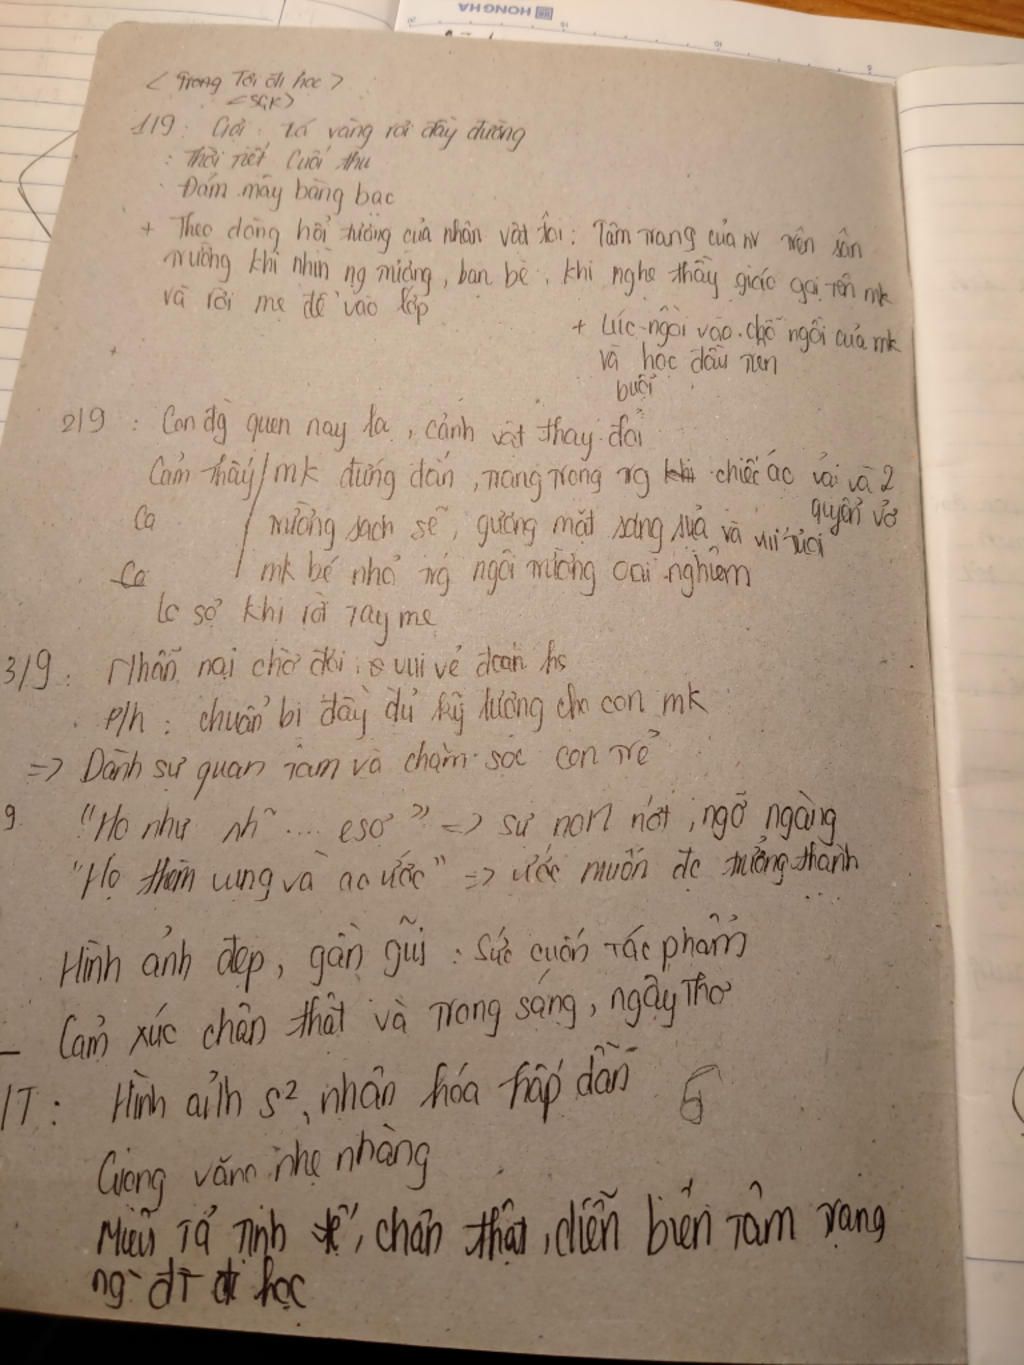 HONG HA
< Trong Tôi đi học >
<SGK>
1/9 : Gợi : Lá vàng rơi đầy đường
: Thời tiết cuối thu
Đám mây bàng bạc
+ Theo dòng hồi tưởng của nhân vật tôi : Tâm trạng của nv trên sân
trường khi nhìn ng mương, bạn bè, khi nghe thầy giáo gọi tên mk
và rời mẹ để vào lớp
+ Lúc ngồi vào chỗ ngồi của mk
và học đầu tiên
buổi
2/9 : Con đg quen nay lạ, cảnh vật thay đổi
Cảm thấy / mk đứng đắn, trang trọng trg chiếc áo vải và 2
quyển vở
Ca
trường sạch sẽ, gương mặt sáng sủa và vui tươi
Ca
mk bé nhỏ trg ngôi trường oai nghiêm
lo sợ khi rời tay mẹ
3/9 : Nhẫn nại chờ đợi, vui vẻ đoán hs
P/h : chuẩn bị đầy đủ kỹ lưỡng cho con mk
=> Dành sự quan tâm và chăm sóc con trẻ
9. "Họ như nh~ .... e sợ" => sự non nớt, ngỡ ngàng
"Họ thèm vụng và ao ước" => ước muốn đc trưởng thành
...
Hình ảnh đẹp, gần gũi : sức cuốn tác phẩm
– Cảm xúc chân thật và trong sáng, ngây thơ
/T : Hình ảnh s², nhân hóa hấp dẫn
Giọng văn nhẹ nhàng
Miêu tả tinh tế, chân thật, diễn biến tâm trạng
ng đt đi học